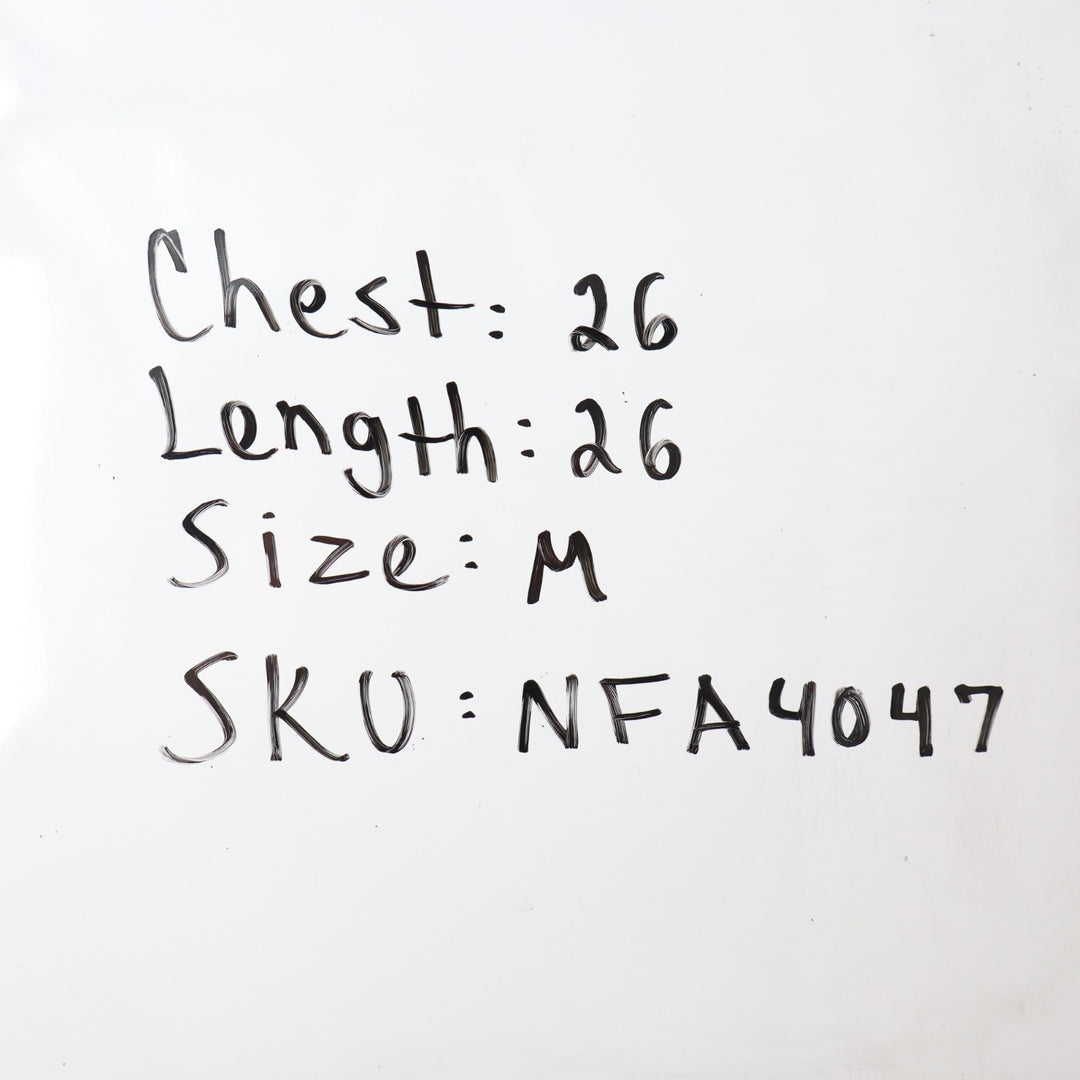 Chest: 26
Length: 26
Size: M
SKU: NFA4047